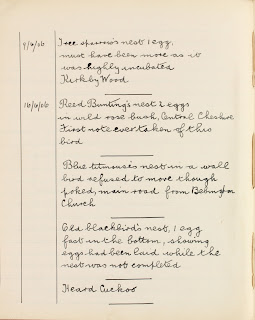 9/6/06 Tree sparrow's nest 1 egg,
must have been more as it
was highly incubated
Kirkby Wood
16/6/06 Reed Bunting's nest 2 eggs
in wild rose bush, Central Cheshire
First note ever taken of this
bird
Blue titmouse's nest in a wall
bird refused to move though
poked, main road from Bebington
Church
Old blackbird's nest, 1 egg
fast in the bottom, showing
eggs had been laid while the
nest was not completed
Heard Cuckoo